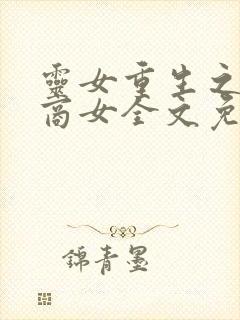 靈女重生之
商女全文免
錦青墨